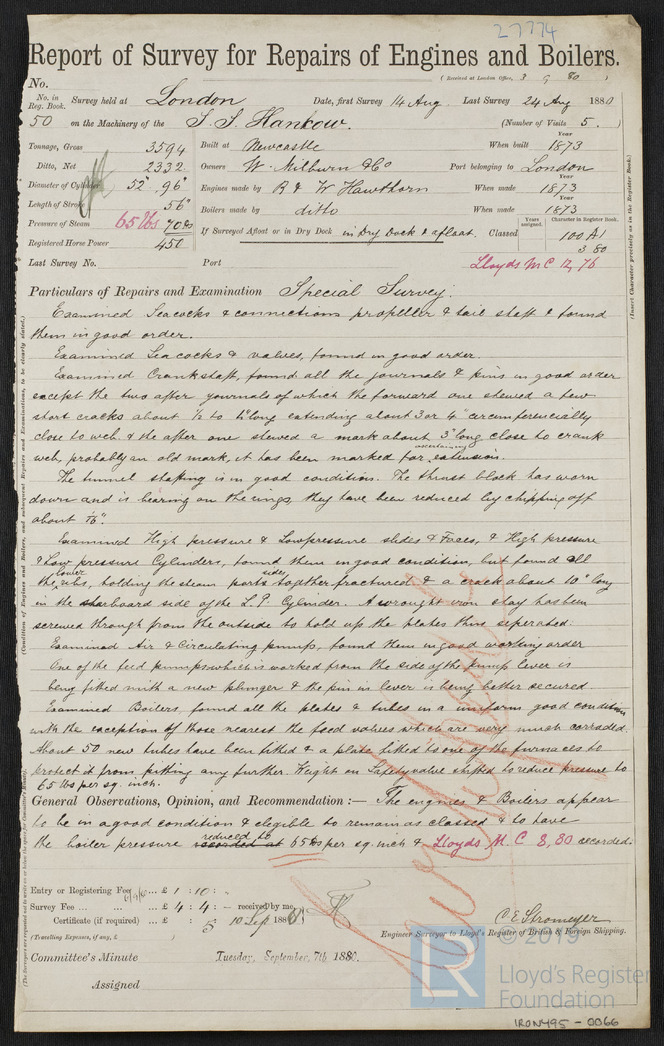 27774
Report of Survey for Repairs of Engines and Boilers.
No.
(Received at London Office, 3 9 80 )
No. in Reg. Book. Survey held at London Date, first Survey 14 Aug. Last Survey 24 Aug 1880
50 on the Machinery of the S. S. Hankow. (Number of Visits 5.)
Tonnage, Gross 3594 Built at Newcastle When built Year 1873
Ditto, Net 2332 Owners W. Milburn & Co Port belonging to London
Diameter of Cylinder 52" 96" Engines made by R & W Hawthorn When made Year 1873
Length of Stroke 56" Boilers made by ditto When made Year 1873
Pressure of Steam 65 lbs 70 lbs If Surveyed Afloat or in Dry Dock in Dry Dock & afloat. Classed Years assigned. Character in Register Book. 100 A1
Registered Horse Power 450 3 80
Last Survey No. Port Lloyds M C 12, 76
(Insert Character precisely as in the Register Book.)
Particulars of Repairs and Examination Special Survey.
Examined Seacocks & connections propeller & tail shaft & found
them in good order.
Examined Sea cocks & valves, found in good order.
Examined Crankshaft, found all the journals & pins in good order
except the two after journals of which the forward one shewed a few
short cracks about 1/2 to 1" long extending about 3 or 4" circumferencially
close to web & the after one shewed a mark about 3" long close to crank
web, probably an old mark, it has been marked for ascertaining extension.
The tunnel shafting is in good condition. The thrust block has worn
down and is bearing on the rings, they have been reduced by chipping off
about 1/16".
Examined High pressure & Low pressure slides & Faces, & High pressure
& Low pressure Cylinders, found them in good condition, but found all
the lower ribs, holding the steam ports sides together fractured & a crack about 10" long
in the starboard side of the L. P. Cylinder. A wrought iron stay has been
screwed through from the outside to hold up the plates thus seperated.
Examined Air & Circulating pumps, found them in good working order
One of the feed pumps which is worked from the side of the pump lever is
being fitted with a new plunger & the pin in lever is being better secured
Examined Boilers, found all the plates & tubes in a uniform good condition
with the exception of those nearest the feed valves which are very much corroded.
About 50 new tubes have been fitted & a plate fitted to one of the furnaces to
protect it from pitting any further. Weight on Safety valve shifted to reduce pressure to
65 lbs per sq. inch.
General Observations, Opinion, and Recommendation :— The engines & Boilers appear
to be in a good condition & eligible to remain as classed & to have
the boiler pressure recorded at reduced to 65 lbs per sq. inch & Lloyds M. C 8, 80 recorded.
Entry or Registering Fee ... £ 1 : 10 : -
Survey Fee ... ... ... £ 4 : 4 : - received by me,
Certificate (if required) ... £ : 5 10 Sep 1880
(Travelling Expenses, if any, £ )
C. E. Stromeyer
Engineer Surveyor to Lloyd's Register of British & Foreign Shipping.
Committee's Minute Tuesday, September, 7th 1880.
Assigned
© 2019
LR
Lloyd's Register
Foundation
IRON495 - 0066